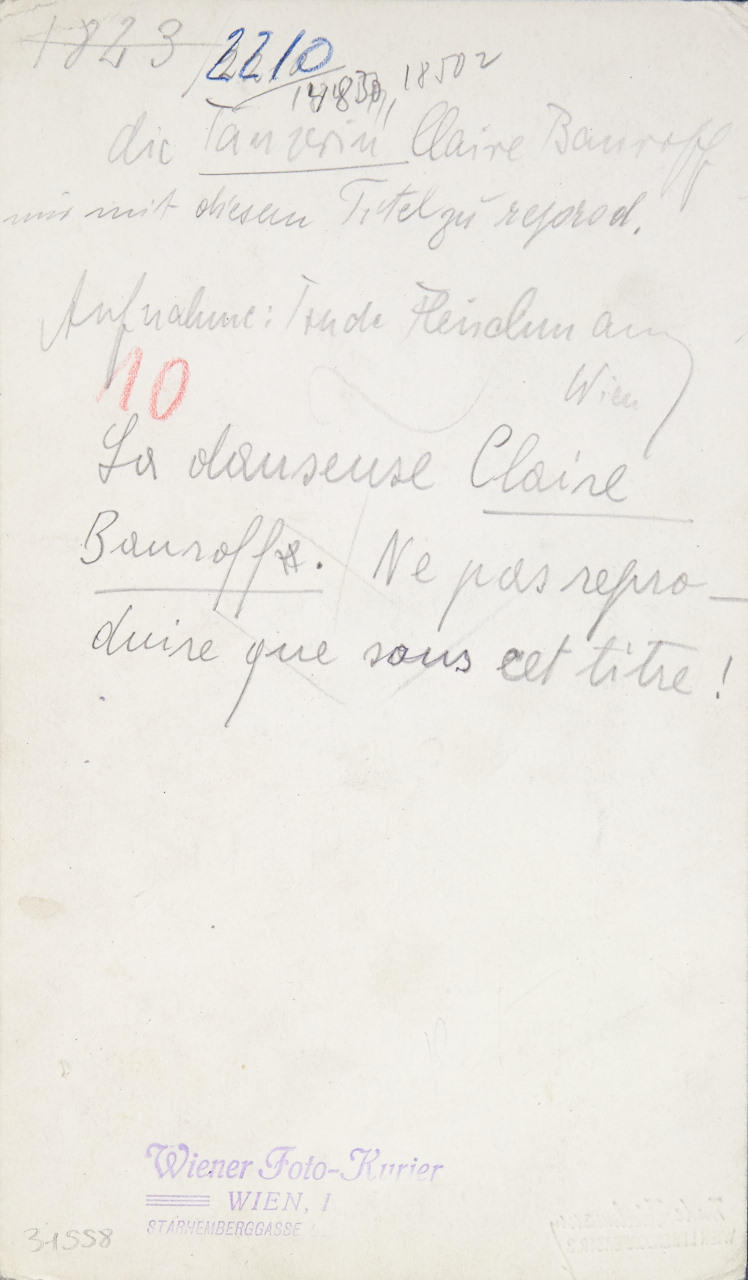 1823 2210
14830, 18502
die Tänzerin Claire Bauroff
nur mit diesem Titel zu reprod.
Aufnahme: Trude Fleischmann
Wien
10
La danseuse Claire
Bauroff. Ne pas repro-
duire que sous cet titre!
Wiener Foto-Kurier
WIEN, I
STARHEMBERGGASSE
31558